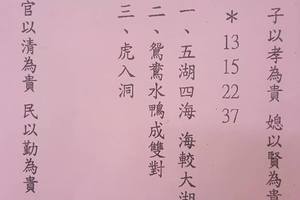 子以孝為貴 媳以賢為貴
＊ 13 15 22 37
一、五湖四海 海較大湖
二、鴛鴦水鴨成雙對
三、虎入洞
官以清為貴 民以勤為貴